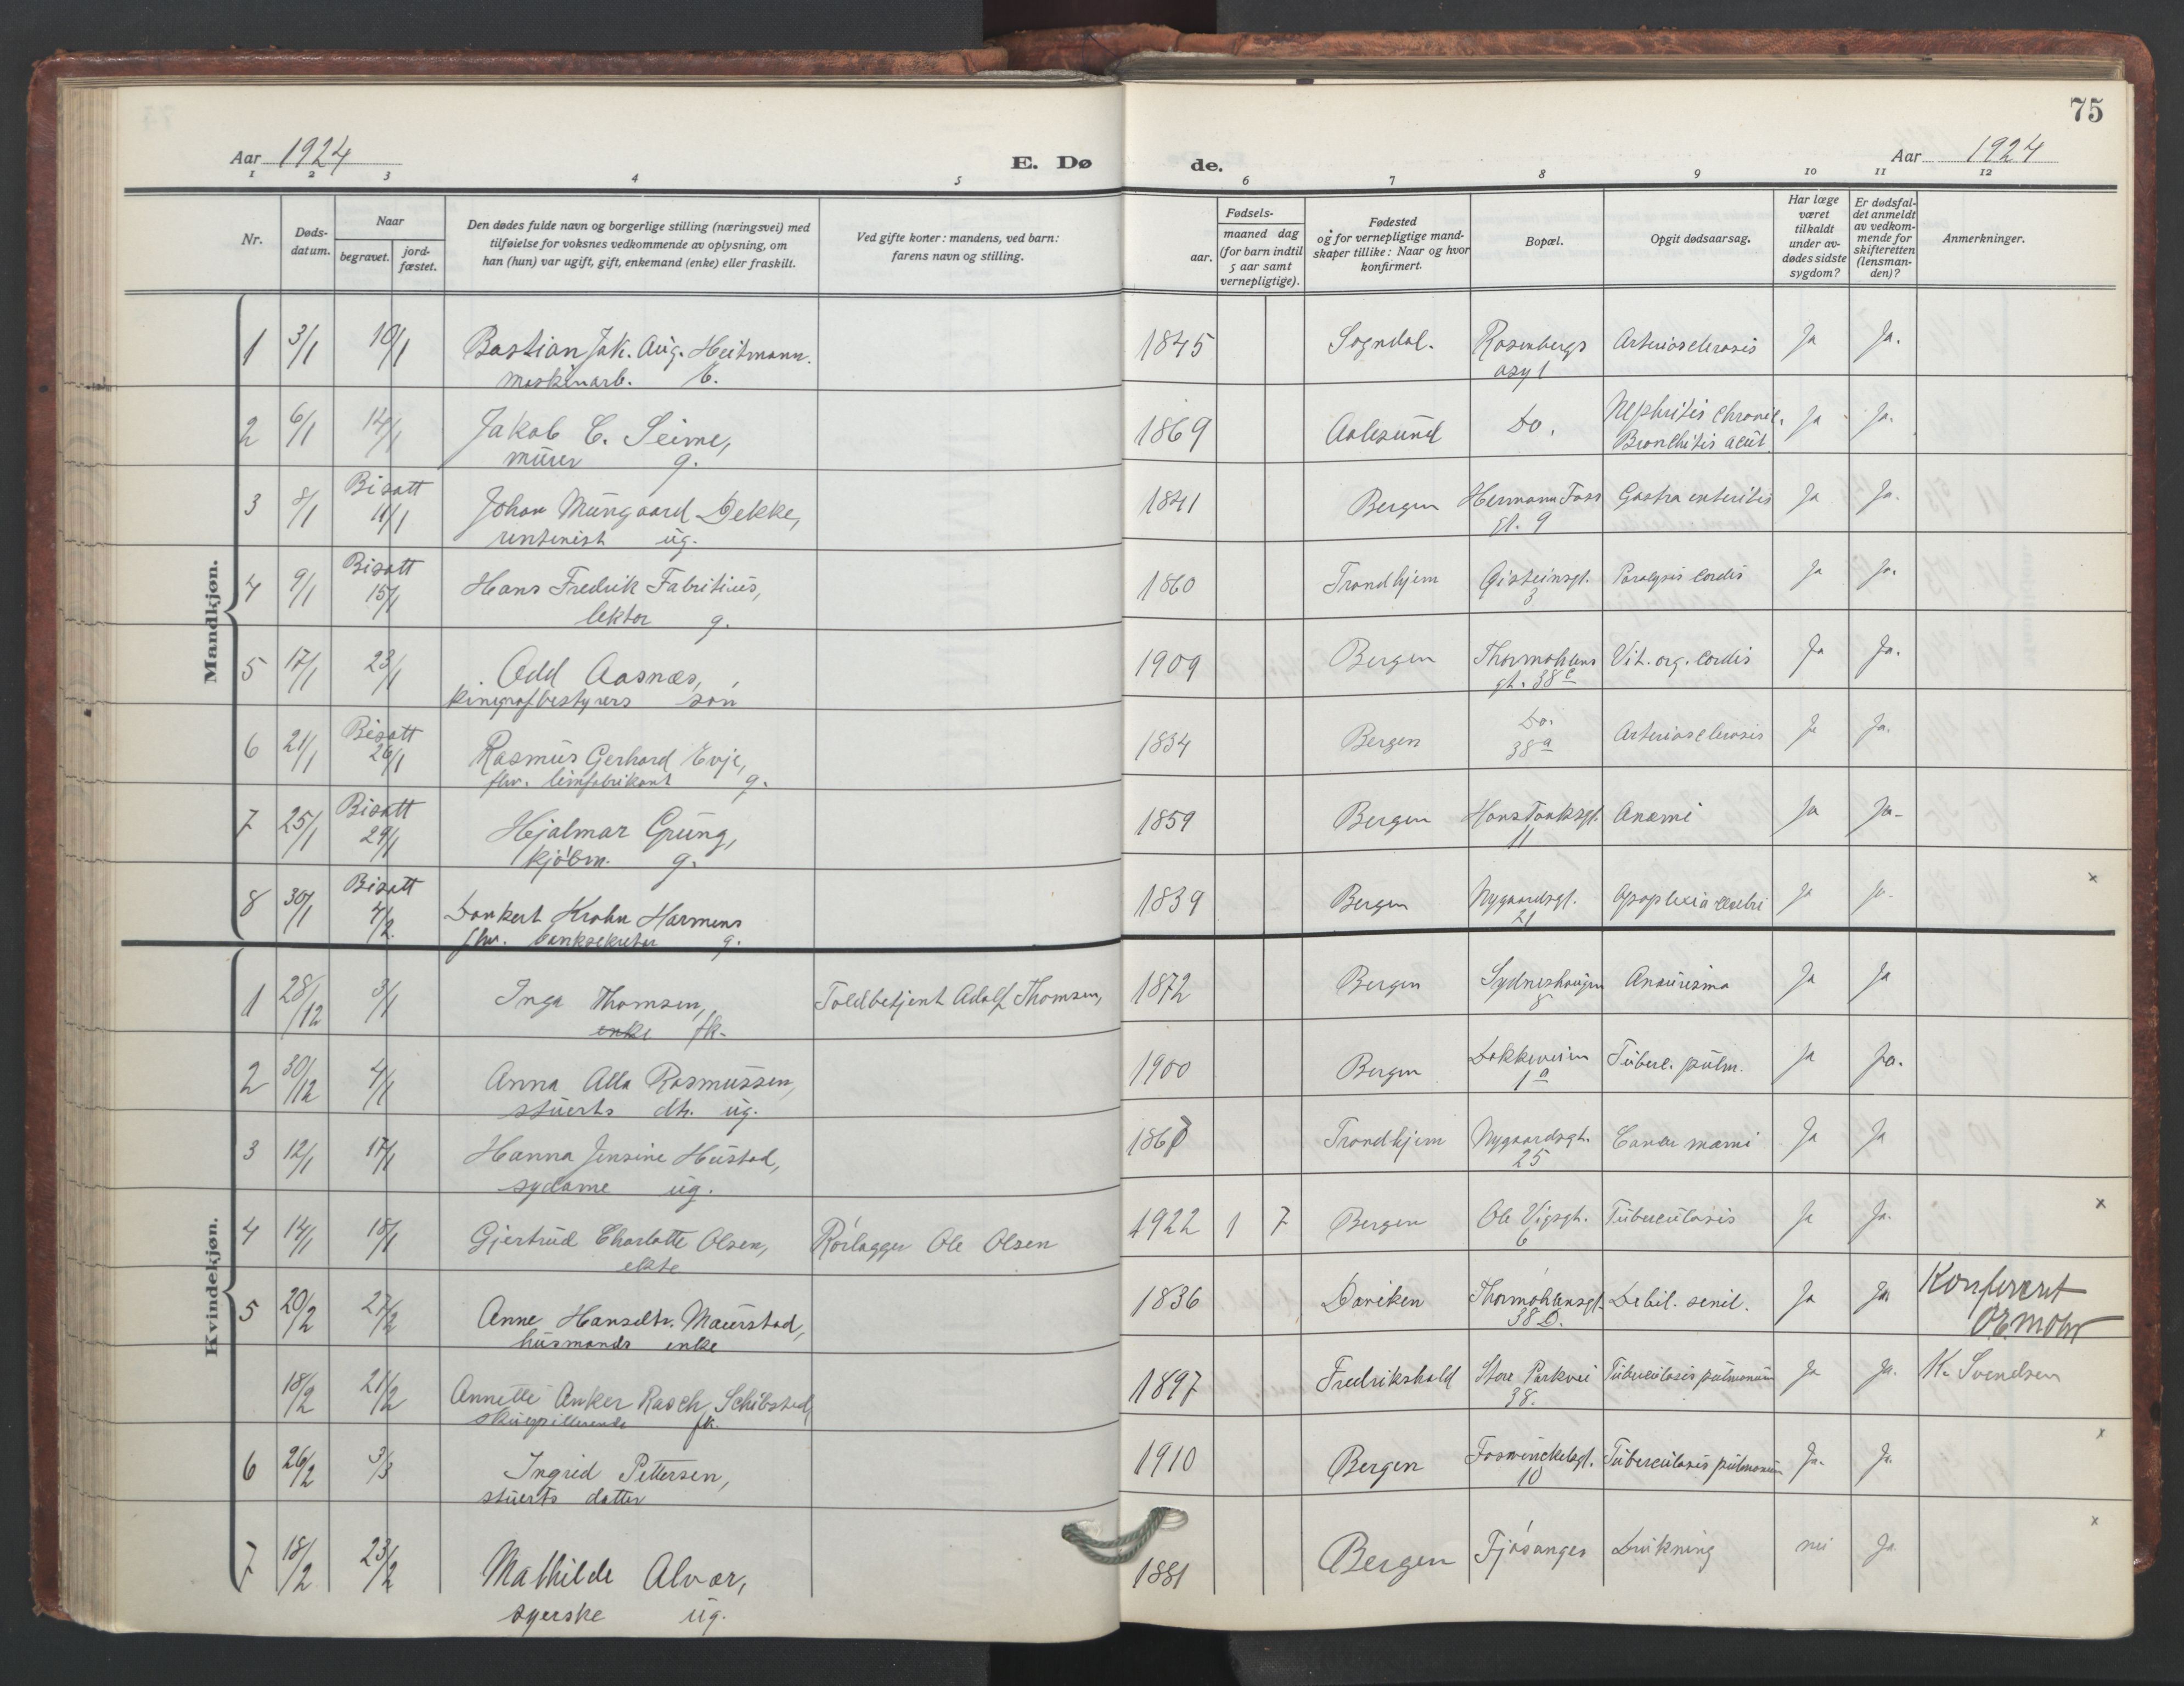 75
Aar 1924
E. Dø de.
Aar 1924
1 2 3 4 5 6 7 8 9 10 11 12
Nr.
Døds-
datum.
Naar
begravet.
jord-
fæstet.
Den dødes fulde navn og borgerlige stilling (næringsvei) med
tilføielse for voksnes vedkommende av oplysning, om
han (hun) var ugift, gift, enkemand (enke) eller fraskilt.
Ved gifte koner: mandens, ved barn:
farens navn og stilling.
Fødsels-
aar.
maaned dag
(for barn indtil
5 aar samt
vernepligtige).
Fødested
og for vernepligtige mand-
skaper tillike: Naar og hvor
konfirmert.
Bopæl.
Opgit dødsaarsag.
Har læge
været
tilkaldt
under av-
dødes sidste
sygdom?
Er dødsfal-
det anmeldt
av vedkom-
mende for
skifteretten
(lensman-
den)?
Anmerkninger.
Mandkjøn.
1 3/1 10/1 Bastian Jak. Aug. Heitmann. 1845 Sogndal. Rosenbergs Arteriosclerosis Ja Ja.
maskinarb. asyl
2 6/1 14/1 Jakob C. Seime, 1869 Aalesund Do. Nephritis chronic. Ja Ja.
murer g. Bronchitis acut.
3 8/1 Bisatt 11/1 Johan Mungaard Dekke, 1841 Bergen Hermann Foss Gastra enteritis Ja Ja.
rentenist ug. gt. 9
4 9/1 Bisatt 15/1 Hans Fredrik Fabritius, 1860 Trondhjem Gisteinsgt. Paralysis cordis Ja Ja.
lektor g. 3
5 17/1 23/1 Odd Aasnæs, 1909 Bergen Thormøhlens Vit. org. cordis Ja Ja.
kinografbestyrers søn gt. 38c
6 21/1 Bisatt 26/1 Rasmus Gerhard Evje, 1834 Bergen Do. Arteriosclerosis Ja Ja.
fhv. limfabrikant g. 38a
7 25/1 Bisatt 29/1 Hjalmar Grung, 1859 Bergen Hans Tanksgt. Anæmi Ja Ja-
kjøbm. g. 11
8 30/1 Bisatt 4/2. Dankert Krohn Harmens 1839 Bergen Nygaardsgt. Apoplexia cerebri Ja Ja. x
fhv. banksekretær g. 21
Kvindekjøn.
1 28/12 3/1 Inga Thomsen, Toldbetjent Adolf Thomsen, 1872 Bergen Sydneshaugen Aneurisma Ja Ja
enke fk. 8
2 30/12 4/1 Anna Alla Rasmussen, 1900 Bergen Dokkeveien Tuberc. pulm. Ja Ja.
stuerts dtr. ug. 1a
3 12/1 17/1 Hanna Jensine Hustad, Trondhjem Nygaardsgt. Cancer mami Ja Ja
sydame ug. 25
4 14/1 18/1 Gjertrud Charlotte Olsen, Rørlægger Ole Olsen 1922 1 7 Bergen Ole Vigsgt. Tuberculosis Ja Ja. x
ekte 6
5 20/2 27/2 Anne Hansdtr. Maurstad, 1836 Daviken Thormøhlensgt. Debil. senil. Ja Ja Konfereret
husmands enke 38 D. OEMohr
18/2 21/2 Annette Anker Rasch Schibsted 1897 Fredrikshald Store Parkvei Tuberculosis pulmonum Ja Ja. K. Svendsen
skuespillerinde fk. 38.
6 26/2 3/3 Ingrid Pettersen, 1910 Bergen Fosswinckelsgt. Tuberculosis pulmonum Ja. Ja. x
stuerts datter 10
7 18/2 23/2 Mathilde Alvær, 1881 Bergen Fjøsanger Drukning nei Ja x
syerske ug.